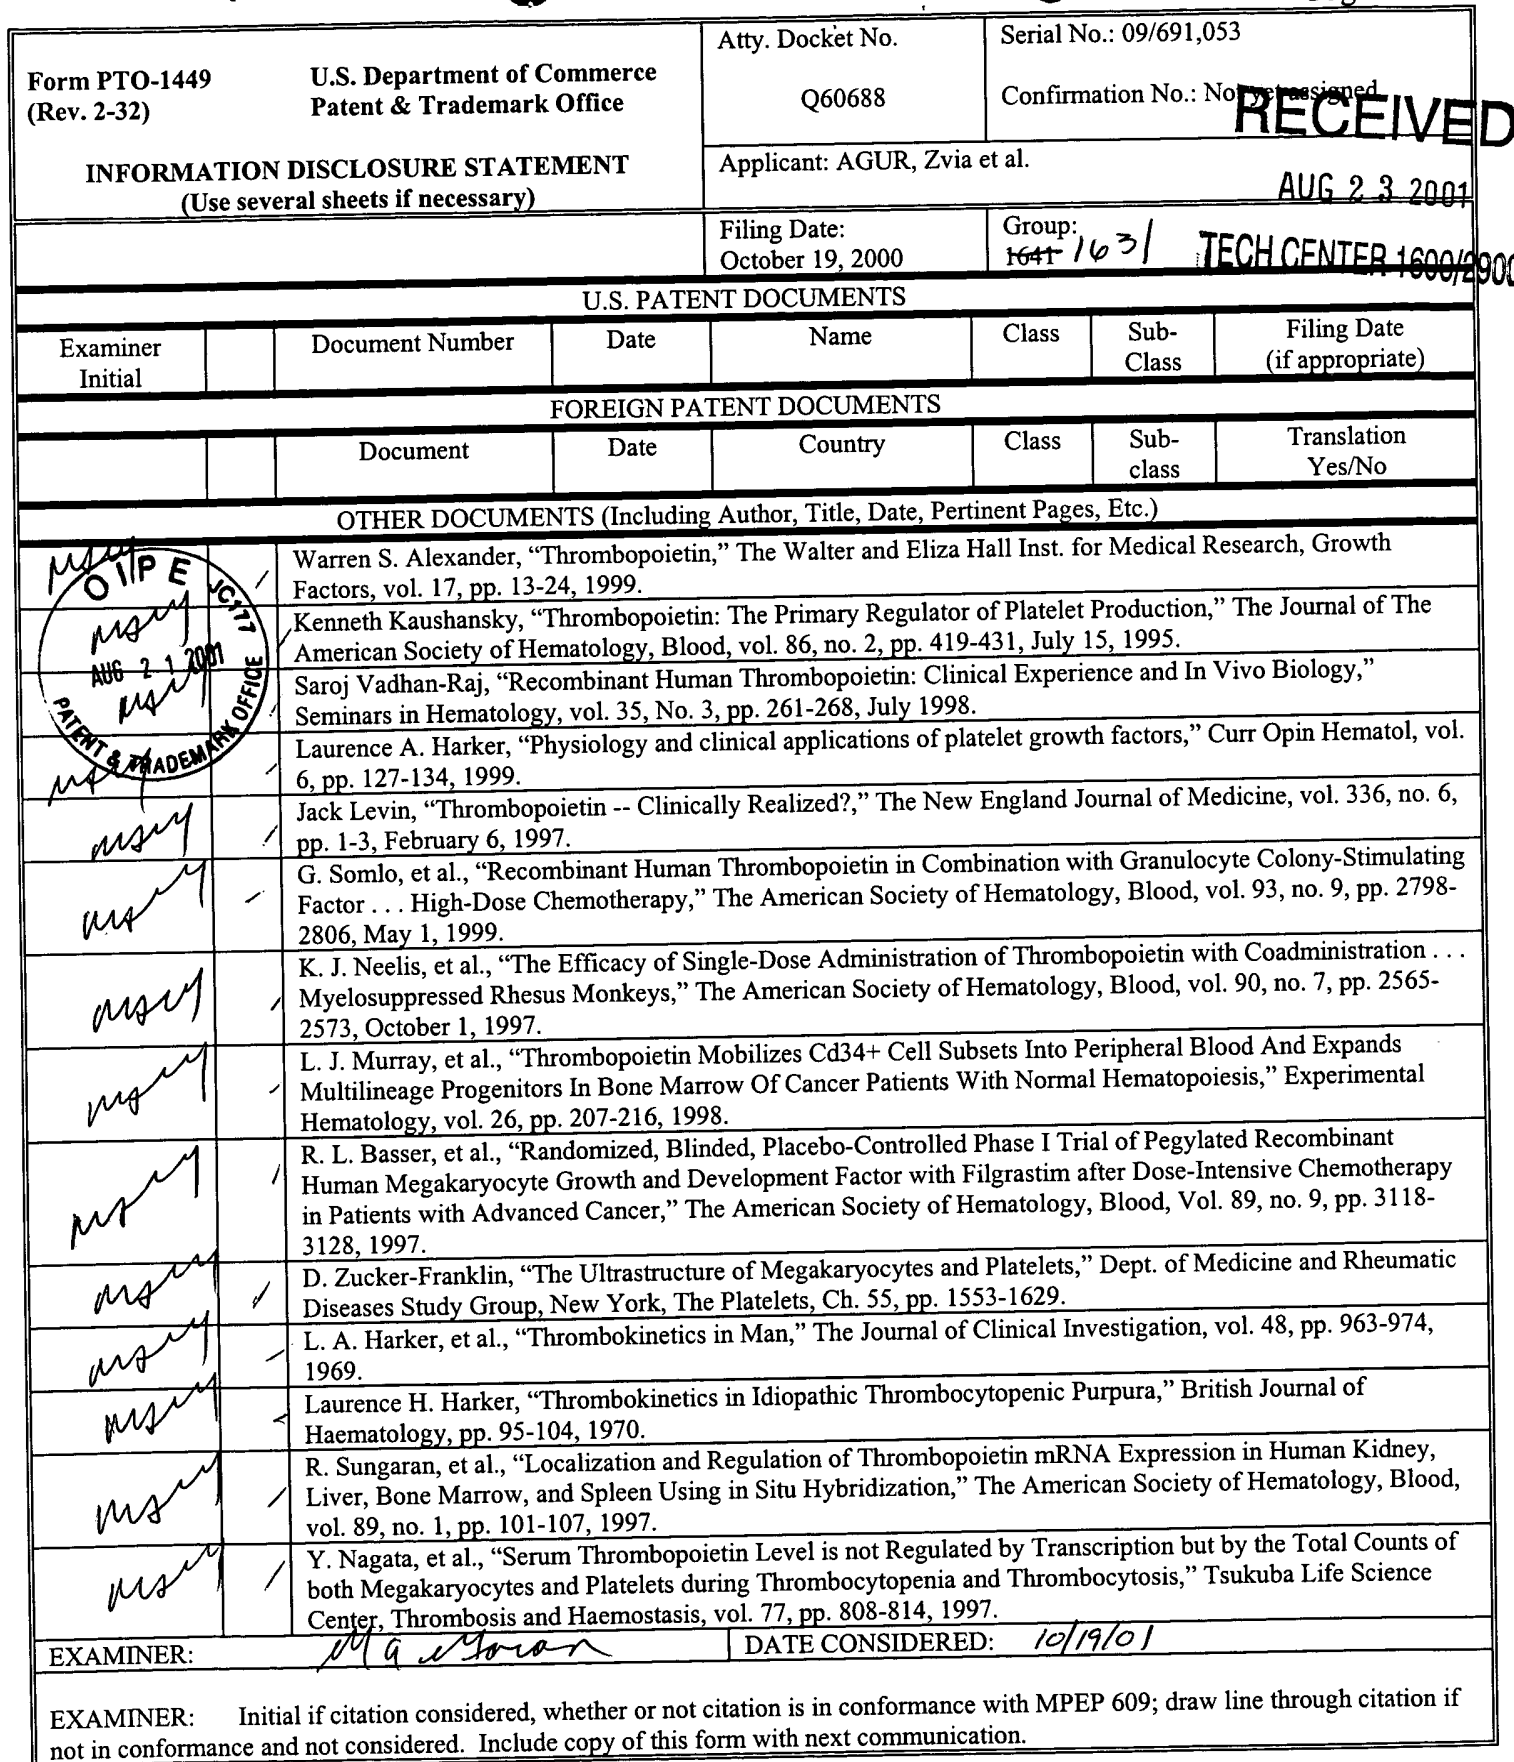 Form PTO-1449
(Rev. 2-32)
U.S. Department of Commerce
Patent & Trademark Office
INFORMATION DISCLOSURE STATEMENT
(Use several sheets if necessary)
Atty. Docket No.
Q60688
Serial No.: 09/691,053
Confirmation No.: Not yet assigned
RECEIVED
Applicant: AGUR, Zvia et al.
AUG 23 2001
Filing Date:
October 19, 2000
Group:
1641 1631
TECH CENTER 1600/2900
U.S. PATENT DOCUMENTS
Examiner
Initial
Document Number
Date
Name
Class
Sub-
Class
Filing Date
(if appropriate)
FOREIGN PATENT DOCUMENTS
Document
Date
Country
Class
Sub-
class
Translation
Yes/No
OTHER DOCUMENTS (Including Author, Title, Date, Pertinent Pages, Etc.)
OIPE JC177
AUG 21 2001
PATENT & TRADEMARK OFFICE
Warren S. Alexander, “Thrombopoietin,” The Walter and Eliza Hall Inst. for Medical Research, Growth
Factors, vol. 17, pp. 13-24, 1999.
Kenneth Kaushansky, “Thrombopoietin: The Primary Regulator of Platelet Production,” The Journal of The
American Society of Hematology, Blood, vol. 86, no. 2, pp. 419-431, July 15, 1995.
Saroj Vadhan-Raj, “Recombinant Human Thrombopoietin: Clinical Experience and In Vivo Biology,”
Seminars in Hematology, vol. 35, No. 3, pp. 261-268, July 1998.
Laurence A. Harker, “Physiology and clinical applications of platelet growth factors,” Curr Opin Hematol, vol.
6, pp. 127-134, 1999.
Jack Levin, “Thrombopoietin -- Clinically Realized?,” The New England Journal of Medicine, vol. 336, no. 6,
pp. 1-3, February 6, 1997.
G. Somlo, et al., “Recombinant Human Thrombopoietin in Combination with Granulocyte Colony-Stimulating
Factor . . . High-Dose Chemotherapy,” The American Society of Hematology, Blood, vol. 93, no. 9, pp. 2798-
2806, May 1, 1999.
K. J. Neelis, et al., “The Efficacy of Single-Dose Administration of Thrombopoietin with Coadministration . . .
Myelosuppressed Rhesus Monkeys,” The American Society of Hematology, Blood, vol. 90, no. 7, pp. 2565-
2573, October 1, 1997.
L. J. Murray, et al., “Thrombopoietin Mobilizes Cd34+ Cell Subsets Into Peripheral Blood And Expands
Multilineage Progenitors In Bone Marrow Of Cancer Patients With Normal Hematopoiesis,” Experimental
Hematology, vol. 26, pp. 207-216, 1998.
R. L. Basser, et al., “Randomized, Blinded, Placebo-Controlled Phase I Trial of Pegylated Recombinant
Human Megakaryocyte Growth and Development Factor with Filgrastim after Dose-Intensive Chemotherapy
in Patients with Advanced Cancer,” The American Society of Hematology, Blood, Vol. 89, no. 9, pp. 3118-
3128, 1997.
D. Zucker-Franklin, “The Ultrastructure of Megakaryocytes and Platelets,” Dept. of Medicine and Rheumatic
Diseases Study Group, New York, The Platelets, Ch. 55, pp. 1553-1629.
L. A. Harker, et al., “Thrombokinetics in Man,” The Journal of Clinical Investigation, vol. 48, pp. 963-974,
1969.
Laurence H. Harker, “Thrombokinetics in Idiopathic Thrombocytopenic Purpura,” British Journal of
Haematology, pp. 95-104, 1970.
R. Sungaran, et al., “Localization and Regulation of Thrombopoietin mRNA Expression in Human Kidney,
Liver, Bone Marrow, and Spleen Using in Situ Hybridization,” The American Society of Hematology, Blood,
vol. 89, no. 1, pp. 101-107, 1997.
Y. Nagata, et al., “Serum Thrombopoietin Level is not Regulated by Transcription but by the Total Counts of
both Megakaryocytes and Platelets during Thrombocytopenia and Thrombocytosis,” Tsukuba Life Science
Center, Thrombosis and Haemostasis, vol. 77, pp. 808-814, 1997.
EXAMINER: M A Moran
DATE CONSIDERED: 10/19/01
EXAMINER: Initial if citation considered, whether or not citation is in conformance with MPEP 609; draw line through citation if
not in conformance and not considered. Include copy of this form with next communication.